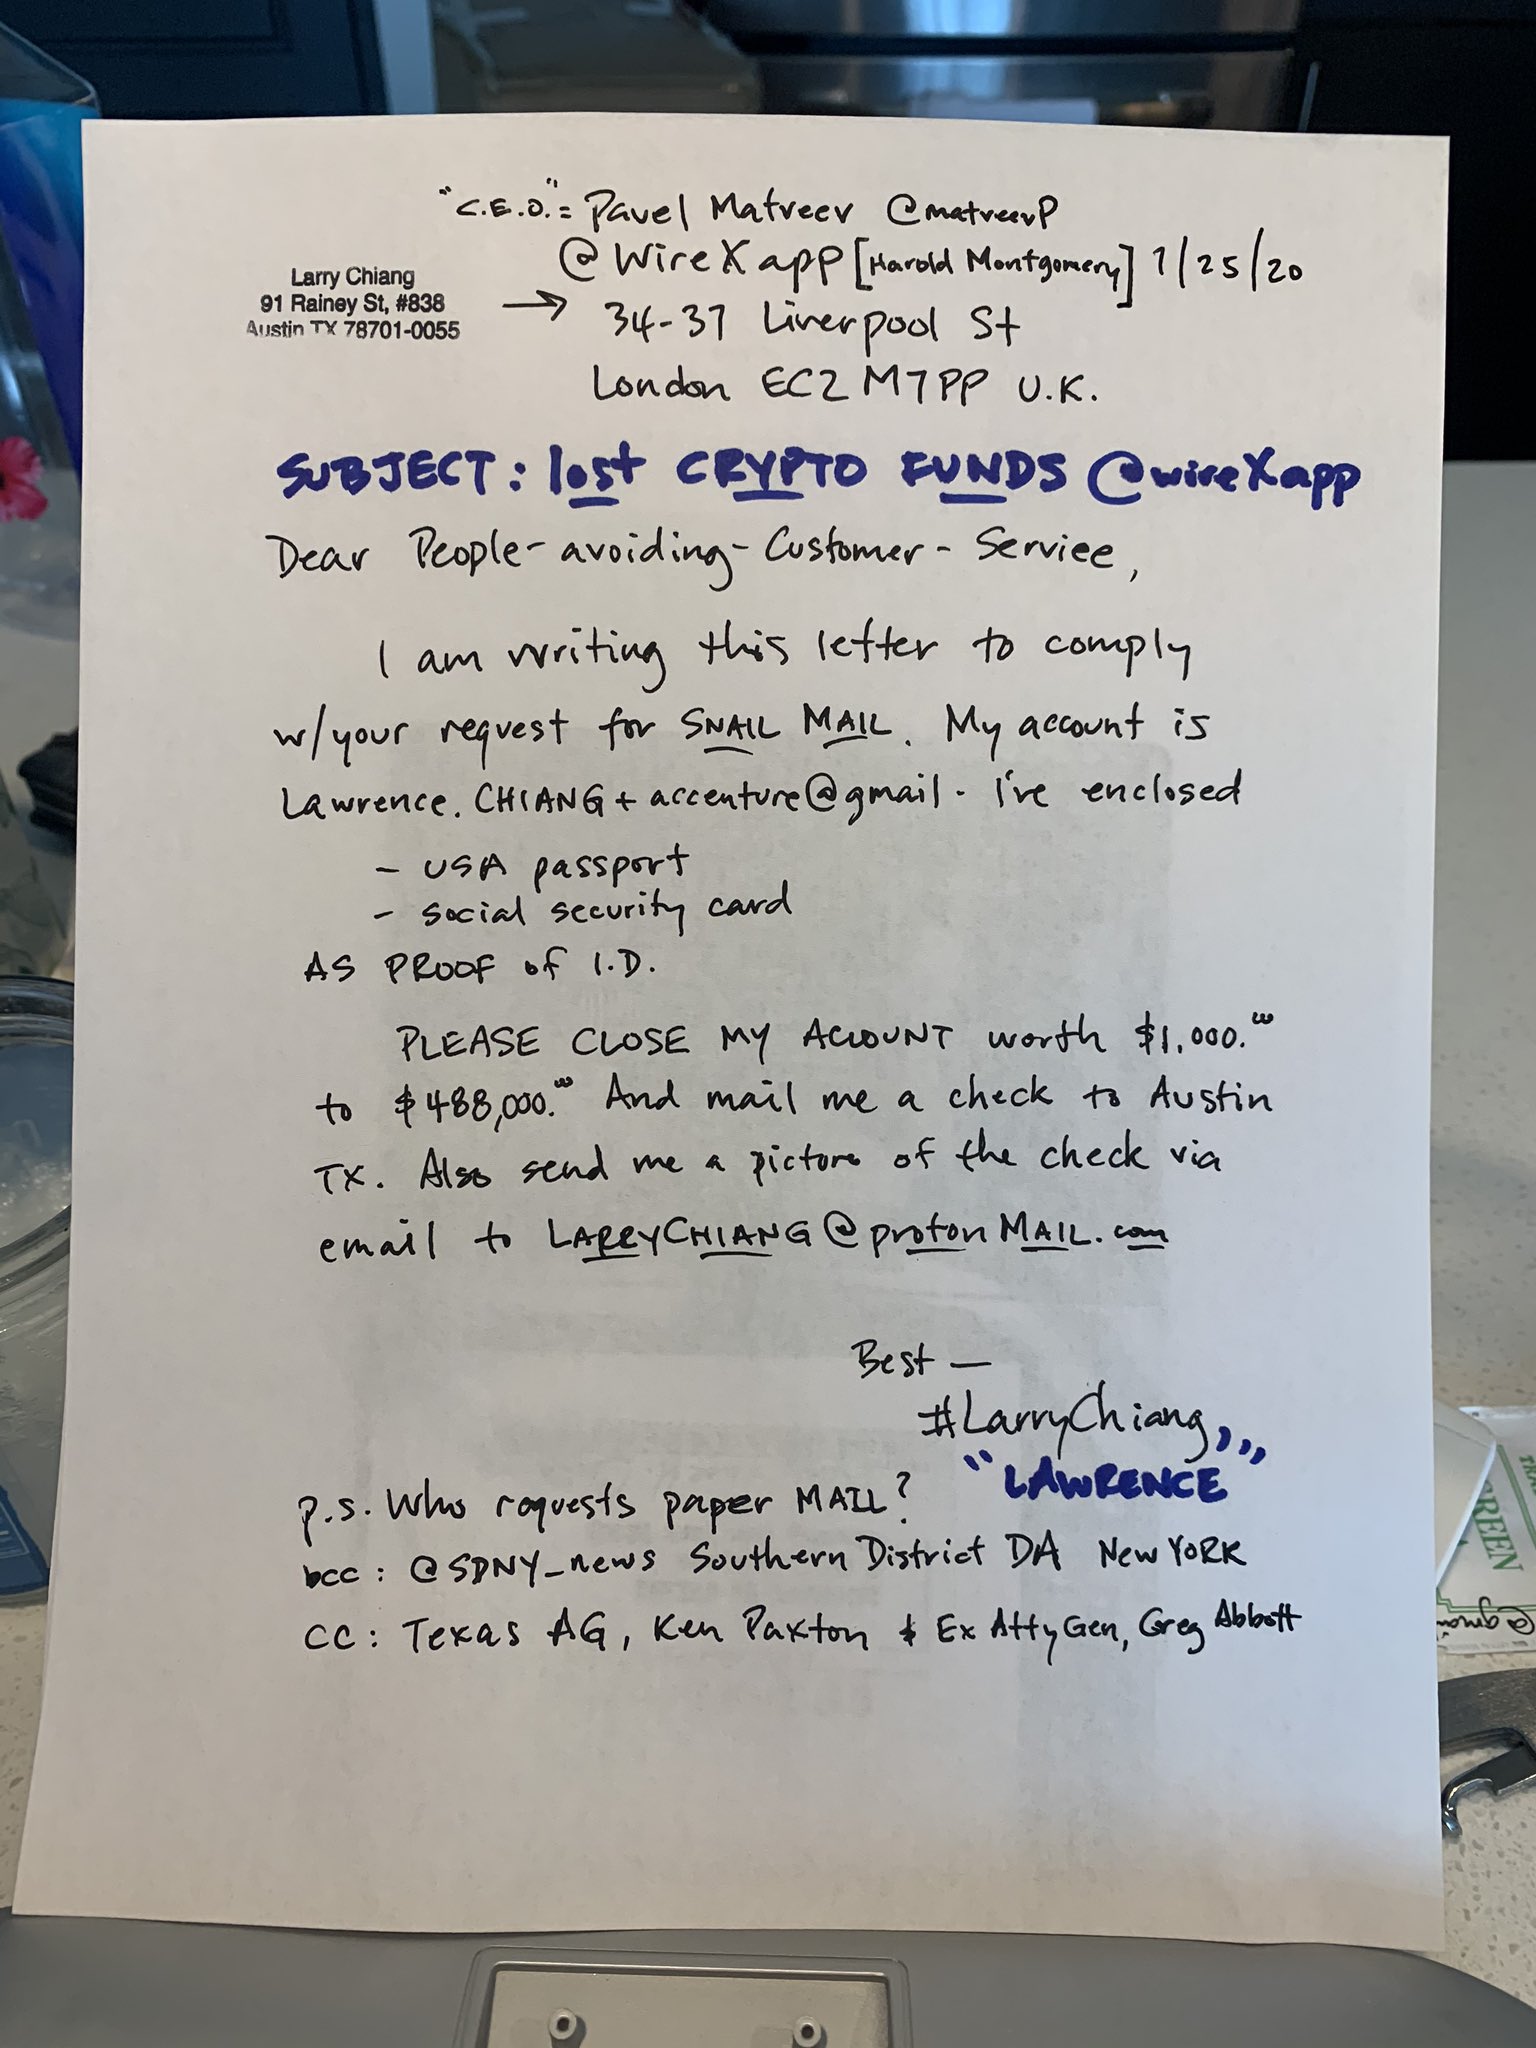 "C.E.O." = Pavel Matveev @matveevP
@WireXapp [Harold Montgomery] 7/25/20
Larry Chiang
91 Rainey St, #838
Austin TX 78701-0055
→ 34-37 Liverpool St
London EC2M7PP U.K.
SUBJECT: lost CRYPTO FUNDS @wireXapp
Dear People-avoiding-Customer-Service,
I am writing this letter to comply
w/your request for SNAIL MAIL. My account is
Lawrence.CHIANG+accenture@gmail. I've enclosed
- USA passport
- social security card
AS PROOF of I.D.
PLEASE CLOSE MY ACCOUNT worth $1,000.00
to $488,000.00 And mail me a check to Austin
TX. Also send me a picture of the check via
email to LARRYCHIANG@protonMAIL.com
Best —
#LarryChiang,,,
"LAWRENCE"
p.s. Who requests paper MAIL?
bcc: @SDNY_news Southern District DA New YORK
CC: Texas AG, Ken Paxton & Ex AttyGen, Greg Abbott
GREEN